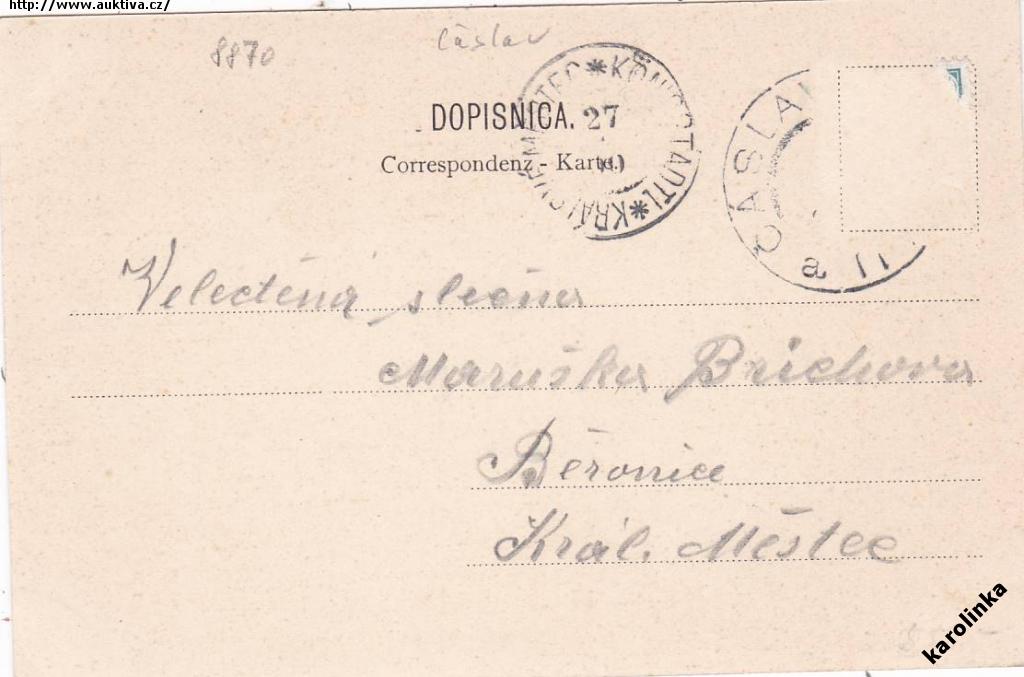 http://www.auktiva.cz/
8870
Čáslav
DOPISNICA.
Correspondenz - Karte.
KÖNIGSTADTL * KRÁLOVÉ MĚSTEC *
27
ČÁSLAV
a
Velectěná slečna
Maruška Brichova
Běronice
Král. Městec
karolinka